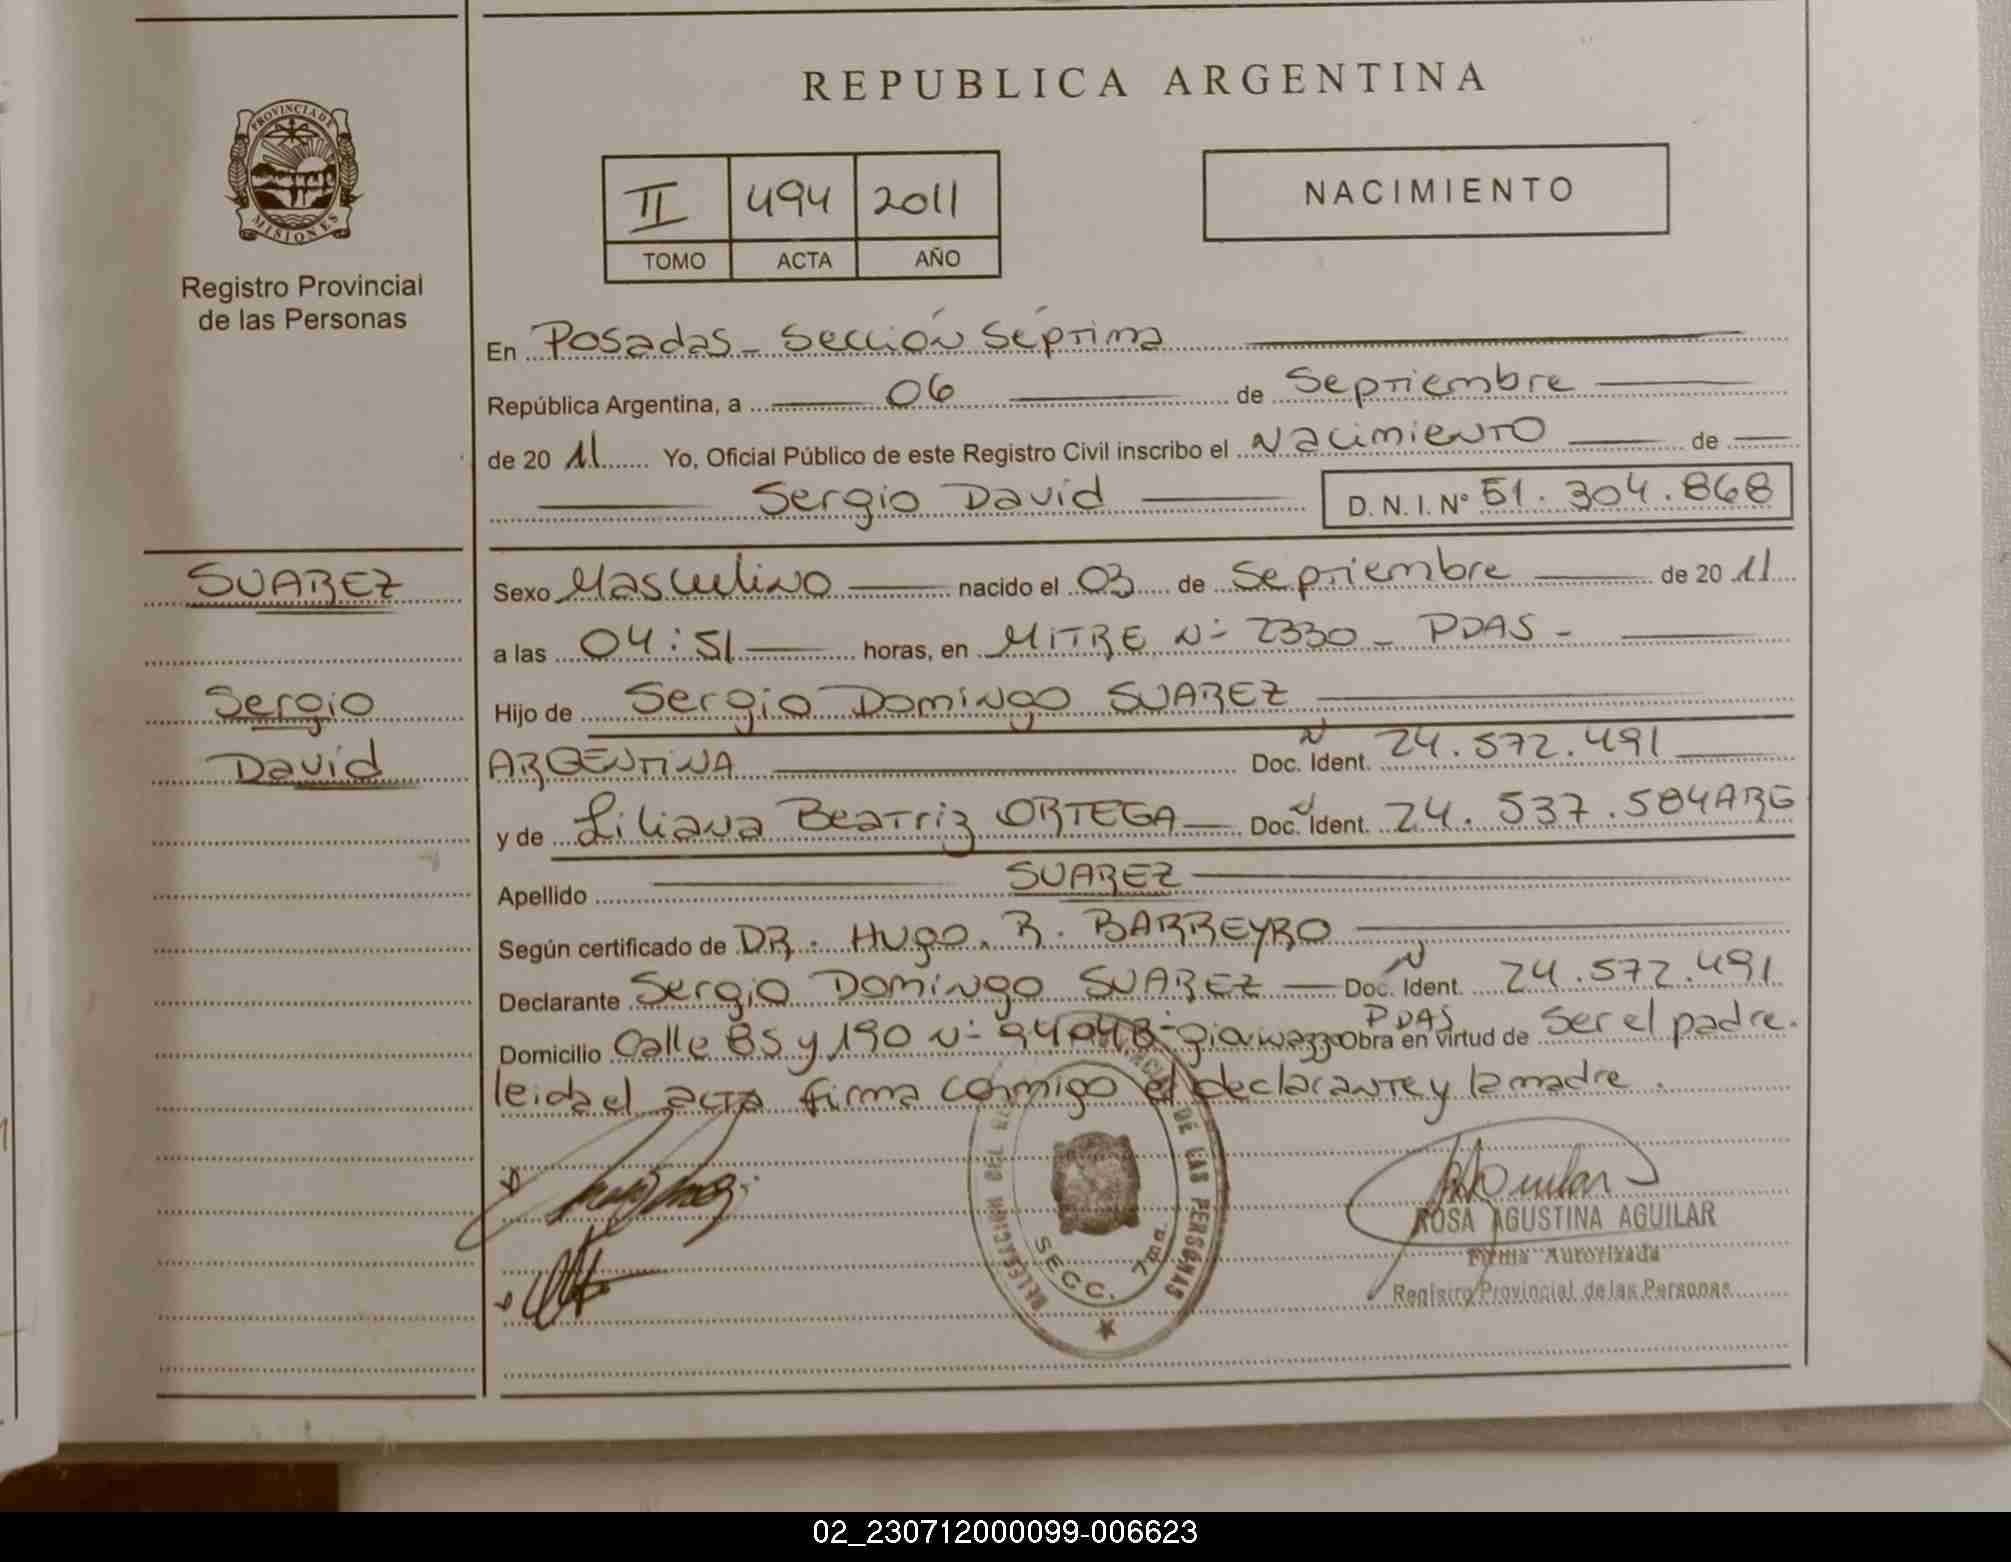 REPUBLICA ARGENTINA
PROVINCIA DE
MISIONES
Registro Provincial
de las Personas
II 494 2011
TOMO ACTA AÑO
NACIMIENTO
En Posadas - Sección Séptima
República Argentina, a 06 de Septiembre
de 20 11 Yo, Oficial Público de este Registro Civil inscribo el Nacimiento de
Sergio David D. N. I. Nº 51.304.868
SUAREZ
Sergio
David
Sexo Masculino nacido el 03 de Septiembre de 20 11
a las 04:51 horas, en MITRE Nº 2330 - PDAS -
Hijo de Sergio Domingo SUAREZ
ARGENTINA Doc. Ident. 24.572.491
y de Liliana Beatriz ORTEGA Doc. Ident. 24.537.584 ARG
Apellido SUAREZ
Según certificado de DR. Hugo. R. BARREYRO
Declarante Sergio Domingo SUAREZ Doc. Ident. 24.572.491
Domicilio Calle 85 y 190 Nº PDAS Obra en virtud de Ser el padre.
leida el acta firma conmigo el declarante y la madre.
DE LAS PERSONAS
DELEGACION
SECC. 7ma.
ROSA AGUSTINA AGUILAR
Firma Autorizada
Registro Provincial de las Personas
02_230712000099-006623